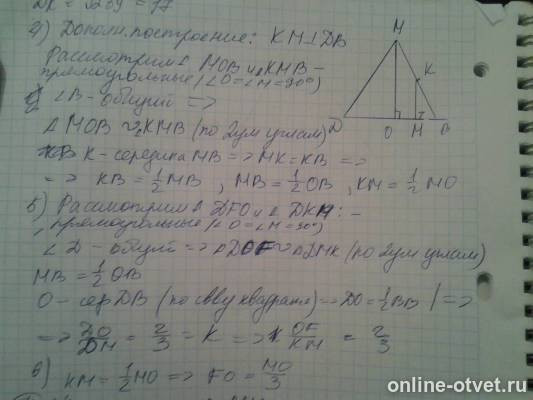 4) Дополн. построение: KM⊥DB
Рассмотрим Δ MOB и Δ KMB –
прямоугольные (∠O=∠M=90°)
∠B – общий =>
Δ MOB ~ Δ KMB (по 2ум углам)
K – середина MB => MK = KB =>
=> KB = 1/2 MB , MB = 1/2 OB , KM = 1/2 MO
5) Рассмотрим Δ DFO и Δ DKM: –
прямоугольные (∠O=∠M=90°)
∠D – общий => Δ DOF ~ Δ DMK (по 2ум углам)
MB = 1/2 OB
O – сер DB (по св-ву квадрата) => DO = 1/2 BB | =>
=> DO/DM = 2/3 = K => OF/KM = 2/3
6) KM = 1/2 MO => FO = MO/3
M
K
D
O
M
B
online-otvet.ru